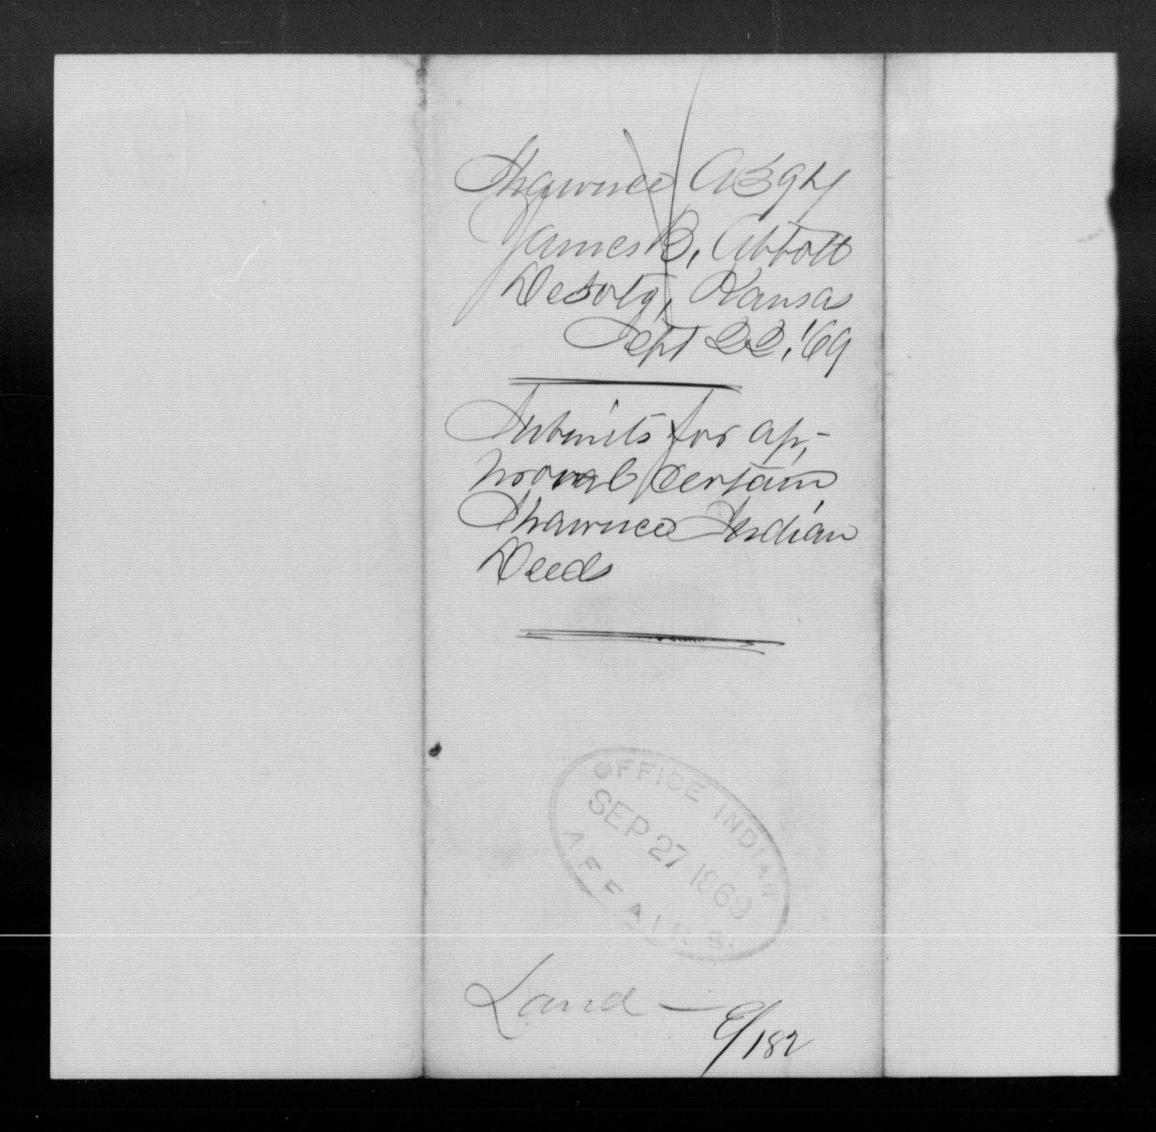 Shawnee A394
James B. Abbott
De Soto, Kansas
Sept 22, '69
Submits for ap-
proval certain
Shawnee Indian
Deeds
OFFICE INDIAN
SEP 27 1869
AFFAIRS.
Land — 9/182